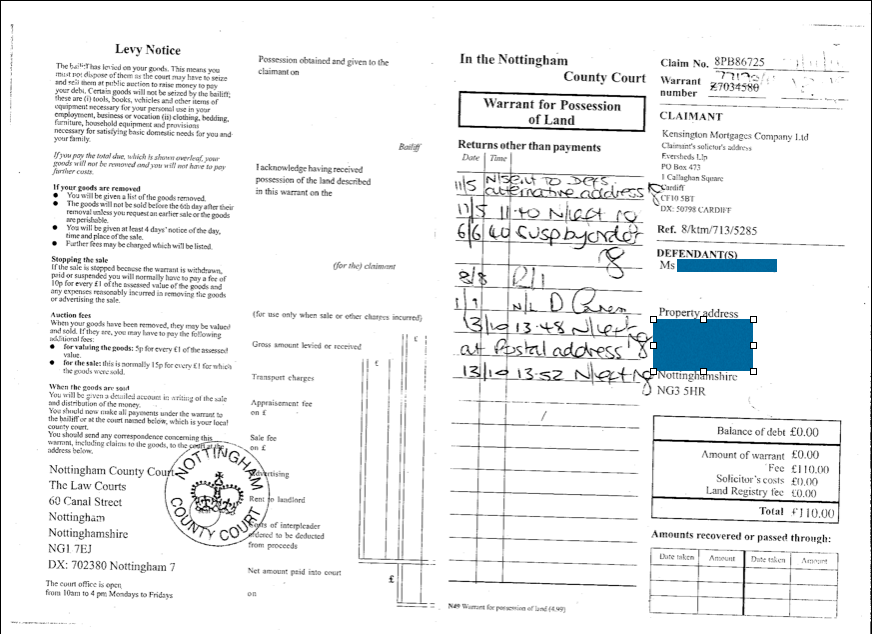 Levy Notice
The bailiff has levied on your goods. This means you
must not dispose of them as the court may have to seize
and sell them at public auction to raise money to pay
your debt. Certain goods will not be seized by the bailiff;
these are (i) tools, books, vehicles and other items of
equipment necessary for your personal use in your
employment, business or vocation (ii) clothing, bedding,
furniture, household equipment and provisions
necessary for satisfying basic domestic needs for you and
your family.
If you pay the total due, which is shown overleaf, your
goods will not be removed and you will not have to pay
further costs.
If your goods are removed
● You will be given a list of the goods removed.
● The goods will not be sold before the 6th day after their
removal unless you request an earlier sale or the goods
are perishable.
● You will be given at least 4 days' notice of the day,
time and place of the sale.
● Further fees may be charged which will be listed.
Stopping the sale
If the sale is stopped because the warrant is withdrawn,
paid or suspended you will normally have to pay a fee of
10p for every £1 of the assessed value of the goods and
any expenses reasonably incurred in removing the goods
or advertising the sale.
Auction fees
When your goods have been removed, they may be valued
and sold. If they are, you may have to pay the following
additional fees:
● for valuing the goods: 5p for every £1 of the assessed
value.
● for the sale: this is normally 15p for every £1 for which
the goods were sold.
When the goods are sold
You will be given a detailed account in writing of the sale
and distribution of the money.
You should now make all payments under the warrant to
the bailiff or at the court named below, which is your local
county court.
You should send any correspondence concerning this
warrant, including claims to the goods, to the court at the
address below.
Nottingham County Court
The Law Courts
60 Canal Street
Nottingham
Nottinghamshire
NG1 7EJ
DX: 702380 Nottingham 7
The court office is open
from 10am to 4 pm Mondays to Fridays
NOTTINGHAM
COUNTY COURT
Possession obtained and given to the
claimant on
Bailiff
I acknowledge having received
possession of the land described
in this warrant on the
(for the) claimant
(for use only when sale or other charges incurred)
£
£
Gross amount levied or received
Transport charges
Appraisement fee
on £
Sale fee
on £
Advertising
Rent to landlord
Costs of interpleader
ordered to be deducted
from proceeds
Net amount paid into court
£
on
In the Nottingham
County Court
Warrant for Possession
of Land
Returns other than payments
Date Time
11/5 N/sent to Defs
alternative address
11/5 11:40 N/left
6/6 Susp by order
8/8
N/L
13/10 13:48 N/left
at Postal address
13/10 13:52 N/left
N49 Warrant for possession of land (4.99)
Claim No. 8PB86725
Warrant
number Z7034580
CLAIMANT
Kensington Mortgages Company Ltd
Claimant's solicitor's address
Eversheds Llp
PO Box 473
1 Callaghan Square
Cardiff
CF10 5BT
DX: 50798 CARDIFF
Ref. 8/ktm/713/5285
DEFENDANT(S)
Ms
Property address
Nottinghamshire
NG3 5HR
Balance of debt £0.00
Amount of warrant £0.00
Fee £110.00
Solicitor's costs £0.00
Land Registry fee £0.00
Total £110.00
Amounts recovered or passed through:
Date taken Amount Date taken Amount